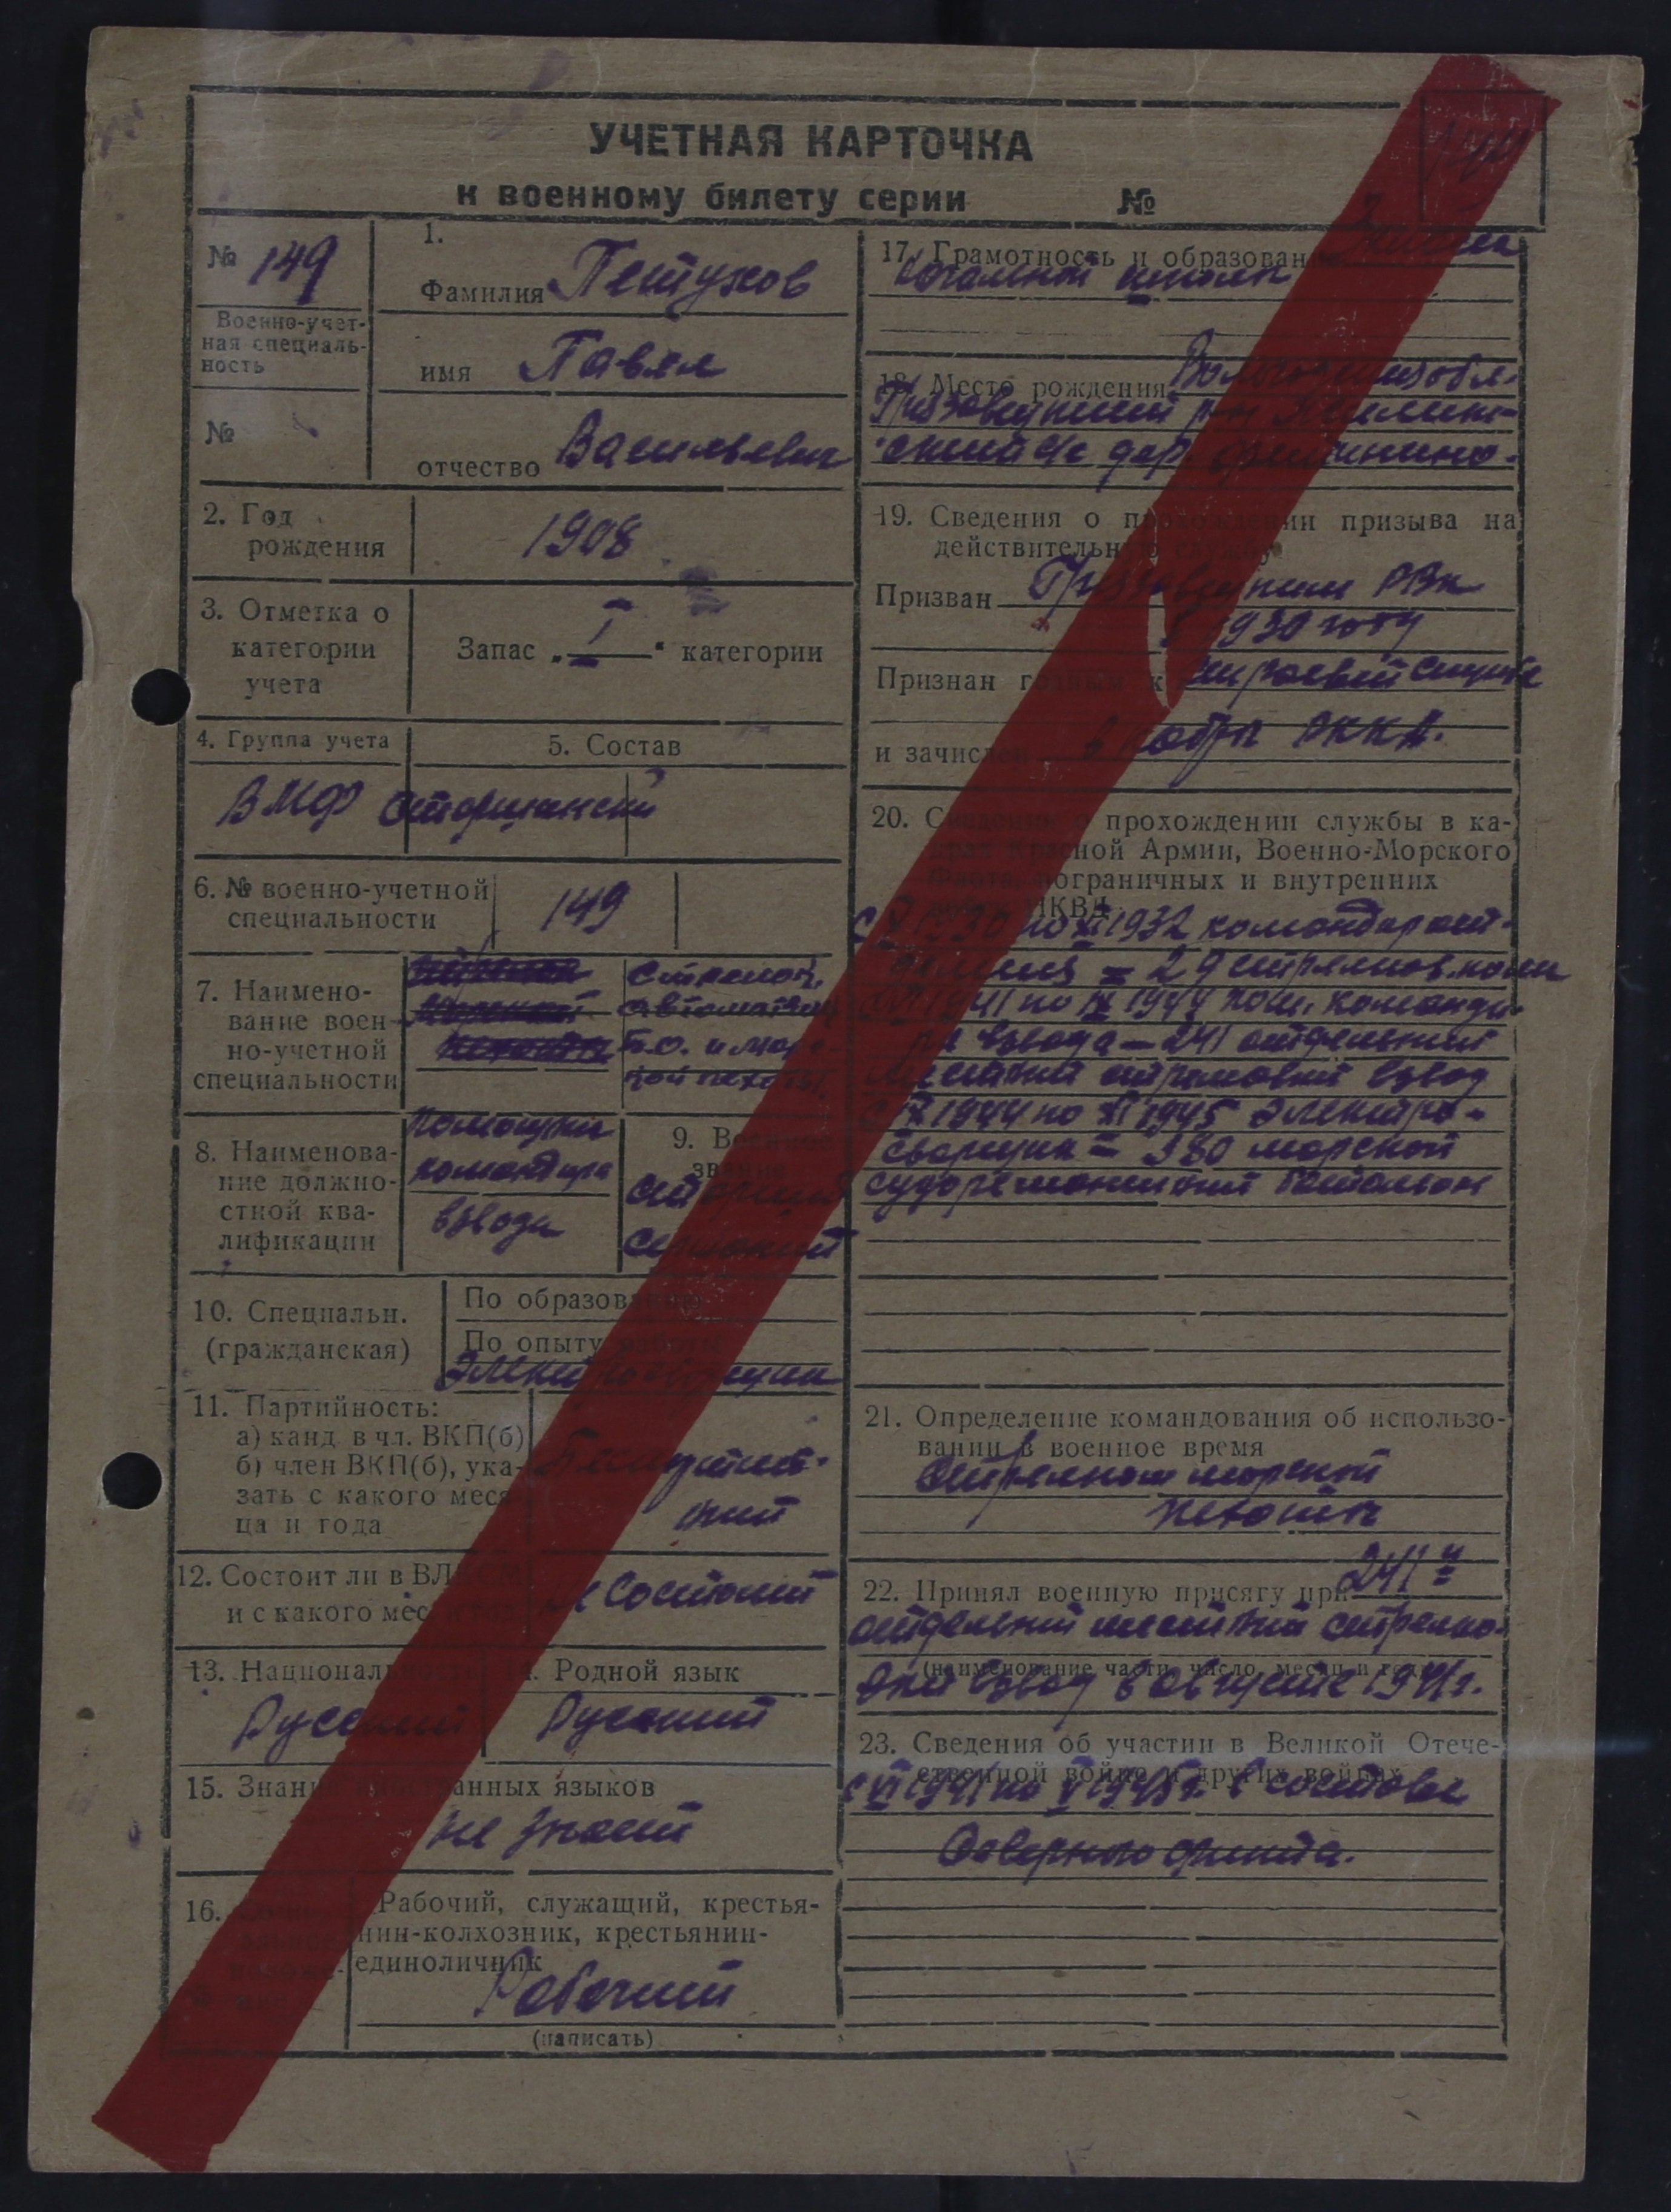 УЧЕТНАЯ КАРТОЧКА
к военному билету серии №
№ 149
Военно-учет-
ная специаль-
ность
№
1.
Фамилия Петухов
имя Павел
отчество Васильевич
2. Год
рождения
1908
3. Отметка о
категории
учета
Запас „I“ категории
4. Группа учета
ВМФ
5. Состав
сержанский
6. № военно-учетной
специальности
149
7. Наимено-
вание воен
но-учетной
специальности
стрелок,
автоматчик
Б.О. и морс-
кой пехоты.
8. Наименова-
ние должно-
стной ква-
лификации
помощник
командира
взвода
9. Военное
звание
старший
сержант
10. Специальн.
(гражданская)
По образованию
По опыту работы
Электросварщик
11. Партийность:
а) канд. в чл. ВКП(б)
б) член ВКП(б), ука-
зать с какого меся
ца и года
Беспартий-
ный
12. Состоит ли в ВЛКСМ
и с какого мес.
не состоит
13. Национальность
Русский
14. Родной язык
Русский
15. Знание иностранных языков
не знает
16. Соци-
альное
положе-
ние
Рабочий, служащий, крестья-
нин-колхозник, крестьянин-
единоличник
Рабочий
(написать)
17. Грамотность и образование
начальной школы
18. Место рождения Вологодская обл.
Грязовецкий р-н
ский с/с дер.
19. Сведения о прохождении призыва на
действительную службу
Призван Грязовецким РВК
в 1930 году
Признан годным к строевой службе
и зачислен в кадры РККА.
20. Сведения о прохождении службы в ка-
драх Красной Армии, Военно-Морского
Флота, пограничных и внутренних
войск НКВД
1930 по XI 1932 командир от-
деления = 29 стрелков. полк
1941 по IX 1944 пом. команди-
ра взвода – 241 отдельный
местный стрелковый взвод
с IX 1944 по XI 1945 электро-
сварщик = 380 морской
судоремонтный батальон
21. Определение командования об использо-
вании в военное время
Стрелком морской
пехоты
22. Принял военную присягу при 241й
отдельный местный стрелко-
(наименование части, число, месяц и год)
вый взвод в августе 1941 г.
23. Сведения об участии в Великой Отече-
ственной войне и других войнах
с VI 1941 по V 1945 г. в составе
Северного флота.